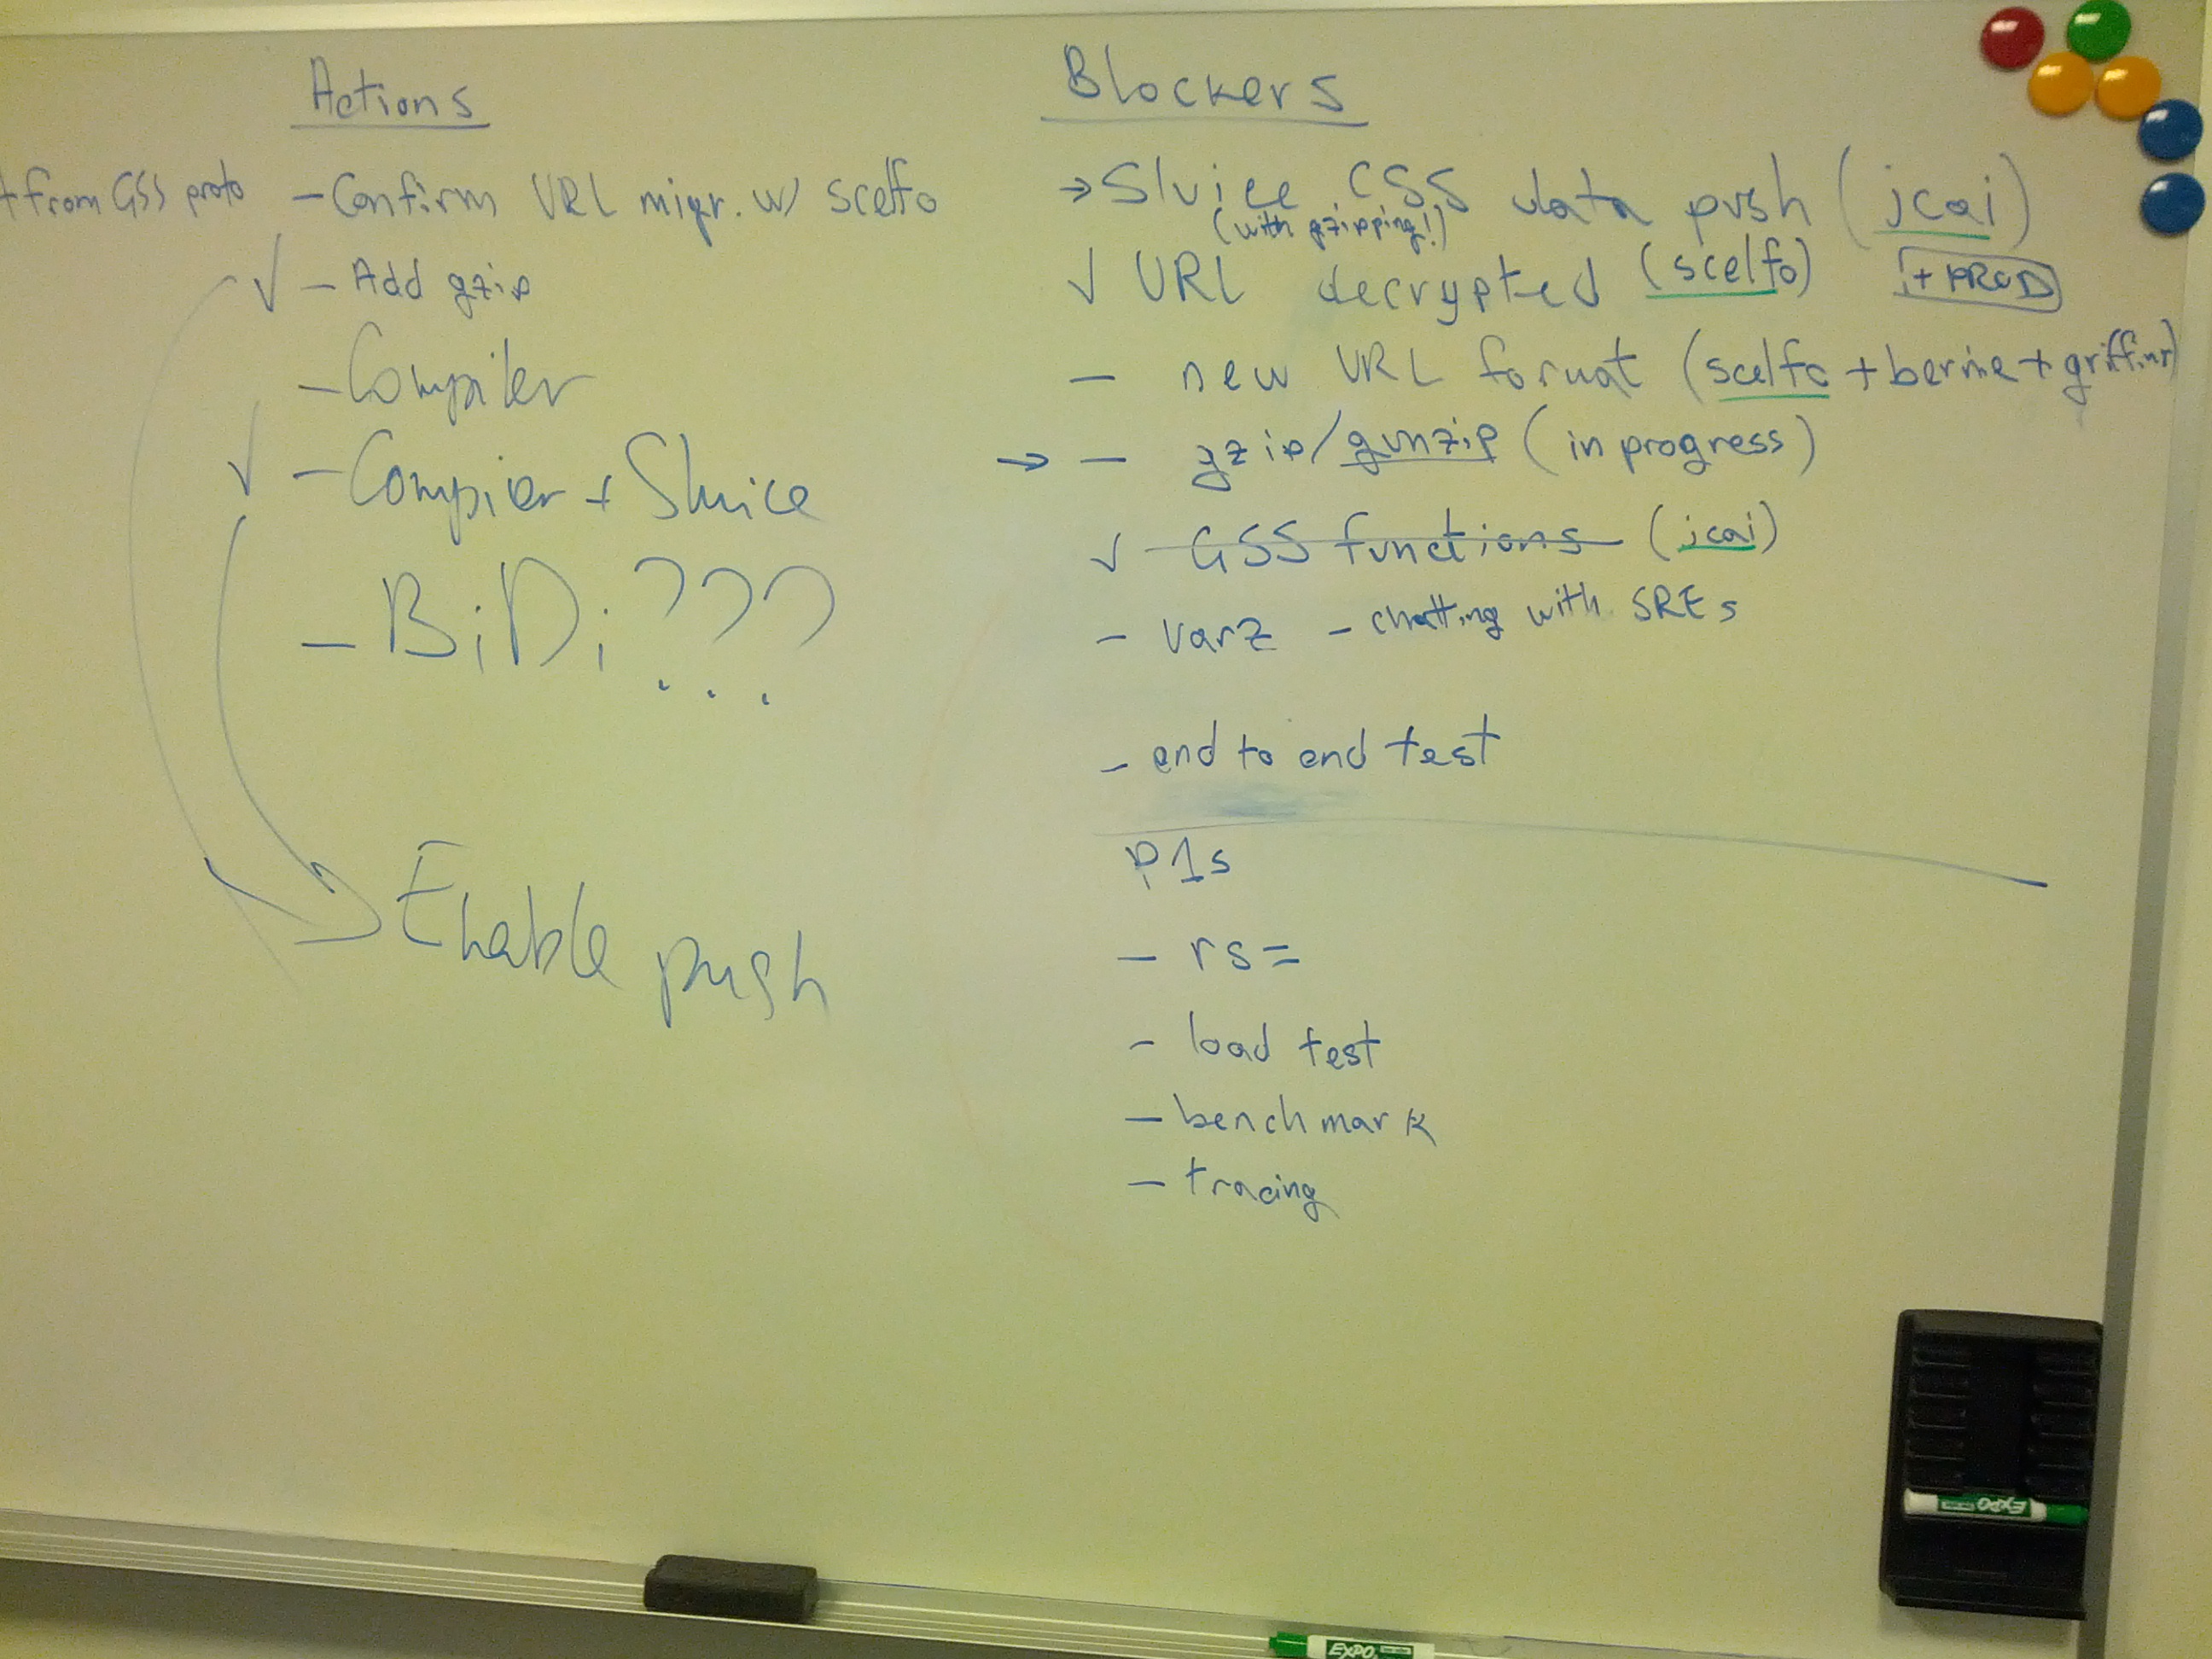 Actions
t from GSS proto - Confirm URL migr. w/ scelfo
✓ - Add gzip
- Compiler
✓ - Compier + Sluice
- BiDi ???
Enable push
Blockers
→ Sluice CSS data push (jcai)
(with gzipping!)
✓ URL decrypted (scelfo) + PROD
- new URL format (scelfo + bernie + griffinr)
→ - gzip/gunzip (in progress)
✓ - GSS functions (jcai)
- varz - chatting with SREs
- end to end test
P1s
- rs=
- load test
- benchmark
- tracing
EXPO
EXPO